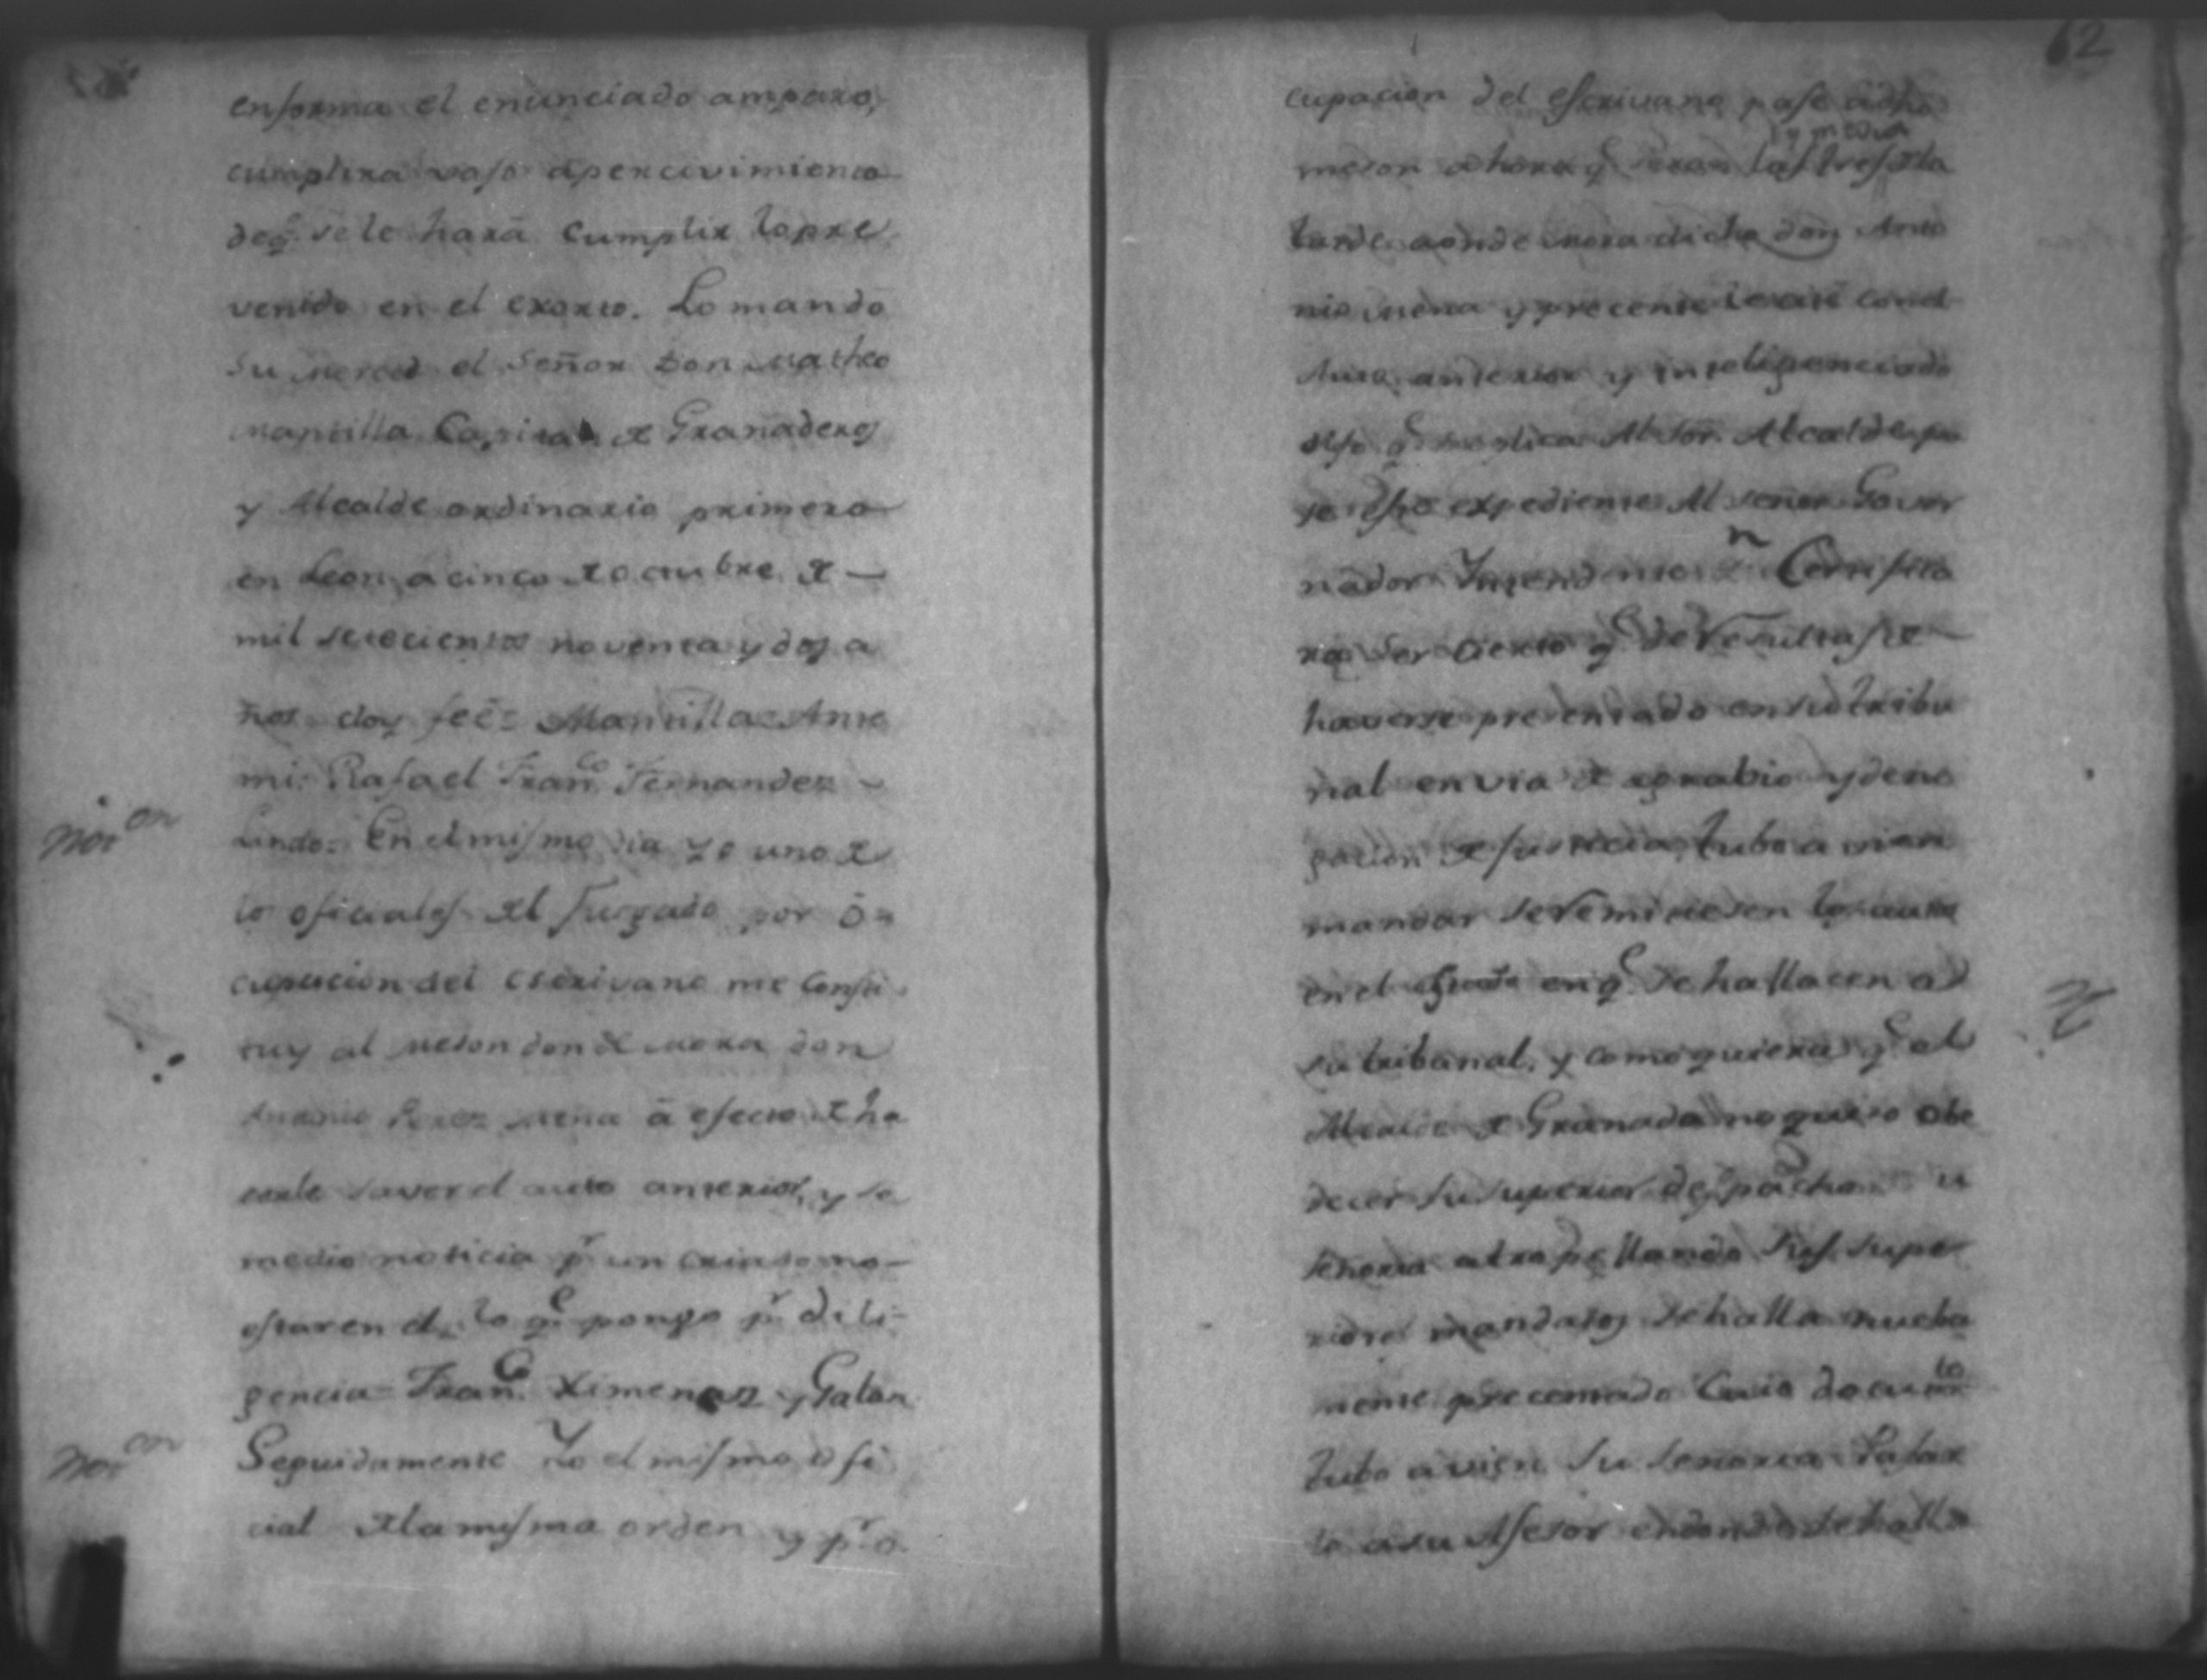 enforma el enunciado amparo,
cumplira vajo apercivimiento
deq.e se le hará cumplir lo pre
venido en el exorto. Lo mandó
Su merced el Señor Don Matheo
Mantilla Capitan de Granaderos
y Alcalde ordinario primero
en Leon, a cinco de octubre de
mil setecientos noventa y dos a
ños doy feé = Mantilla = Ante
mi: Rafael Fran.co Fernandez
Not.on
Lindo = En el mismo dia yo uno de
lo oficiales del Jusgado por ó
cupacion del escrivano me consti
tuy al meson donde mora don
Antonio Perez Mena á efecto de ha
cerle saver el auto anterior, y se
me dio noticia p.r un criado no
estar en el, lo q.e pongo p.r dili
gencia = Fran.co Ximenez y Galan
Not.on
Seguidamente Yo el mismo ofi
cial de la misma orden y p.r o
62
cupacion del escrivano pase a dho
y media
meson a hora q.e seran las tres de la
tarde donde mora dicho don Anto
nio Mena y precente le cité con el
Auto anterior y inteligenciado
dijo q.e suplica Al Sor. Alcalde pa
se dho expediente Al señor Gover
nador Intendente Certifica
ra ser cierto q.e de resultas de
haverse presentado en su tribu
nal en via de agrabio y dene
gacion de justicia, tubo a vien
mandar se remitiesen los autos
en el estado en q.e se hallacen a
su tribunal, y como quiera q.e el
Alcalde de Granada no quiso obe
decer su superior despacho u
señoria atropellando sus supe
riores mandatos se halla nueba
mente precentado Cuio docum.to
tubo a vien su senoria Pasar
lo a su Asesor endonde se halla